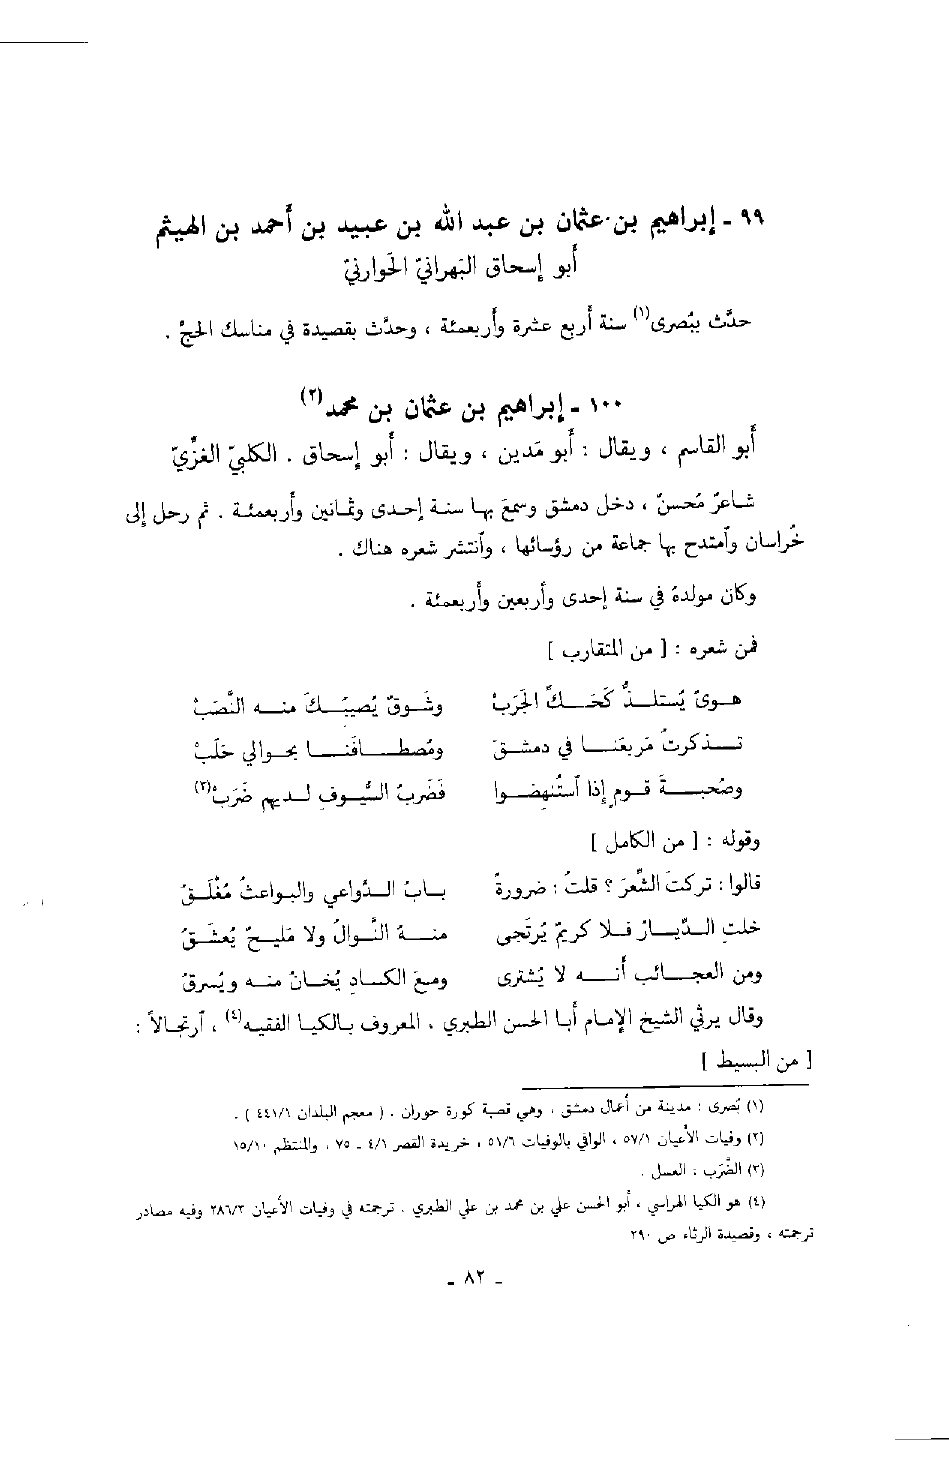 ٩٩ ـ إبراهيم بن عثمان بن عبد الله بن عبيد بن أحمد بن الهيثم
أبو إسحاق البَهرانيّ الحَوارنيّ
حدَّث ببُصرى(١) سنة أربع عشرة وأربعمئة ، وحدَّث بقصيدة في مناسك الحجّ .
١٠٠ ـ إبراهيم بن عثمان بن محمد(٢)
أبو القاسم ، ويقال : أبو مَدين ، ويقال : أبو إسحاق . الكلبيّ الغزّيّ
شاعرٌ مُحسنٌ ، دخل دمشق وسمعَ بها سنة إحدى وثمانين وأربعمئة . ثم رحل إلى
خُراسان وٱمتدح بها جماعة من رؤسائها ، وٱنتشر شعره هناك .
وكان مولدهُ في سنة إحدى وأربعين وأربعمئة .
فمن شعره : [ من المتقارب ]
هوىً يُستلذُّ كَحَكِّ الجَرَبْ وشَوقٌ يُصيبُكَ منه النَّصَبْ
تذكرتُ مَربعَنا في دمشقَ ومُصطافَنا بحوالي حَلَبْ
وصُحبةَ قومٍ إذا ٱستُنهِضوا فَضَربُ السُّيوفِ لديهم ضَرَبْ(٣)
وقوله : [ من الكامل ]
قالوا : تركتَ الشِّعرَ ؟ قلتُ : ضرورةً بابُ الدَّواعي والبواعثُ مُغْلَقُ
خلتِ الدِّيارُ فلا كريمٌ يُرتَجى منهُ النَّوالُ ولا مَليحٌ يُعشَقُ
ومن العجائب أنه لا يُشترى ومعَ الكسادِ يُخانُ منه ويُسرقُ
وقال يرثي الشيخ الإمام أبا الحسن الطبري ، المعروف بالكيا الفقيه(٤) ، ٱرتجالاً :
[ من البسيط ]
(١) بُصرى : مدينة من أعمال دمشق ، وهي قصبة كورة حوران . ( معجم البلدان ٤٤١/١ ) .
(٢) وفيات الأعيان ٥٧/١ ، الوافي بالوفيات ٥١/٦ ، خريدة القصر ٤/١ ـ ٧٥ ، والمنتظم ١٥/١٠
(٣) الضَّرَب : العسل .
(٤) هو الكيا الهراسي ، أبو الحسن علي بن محمد بن علي الطبري . ترجمته في وفيات الأعيان ٢٨٦/٣ وفيه مصادر
ترجمته ، وقصيدة الرثاء ص ٢٩٠
ـ ٨٢ ـ